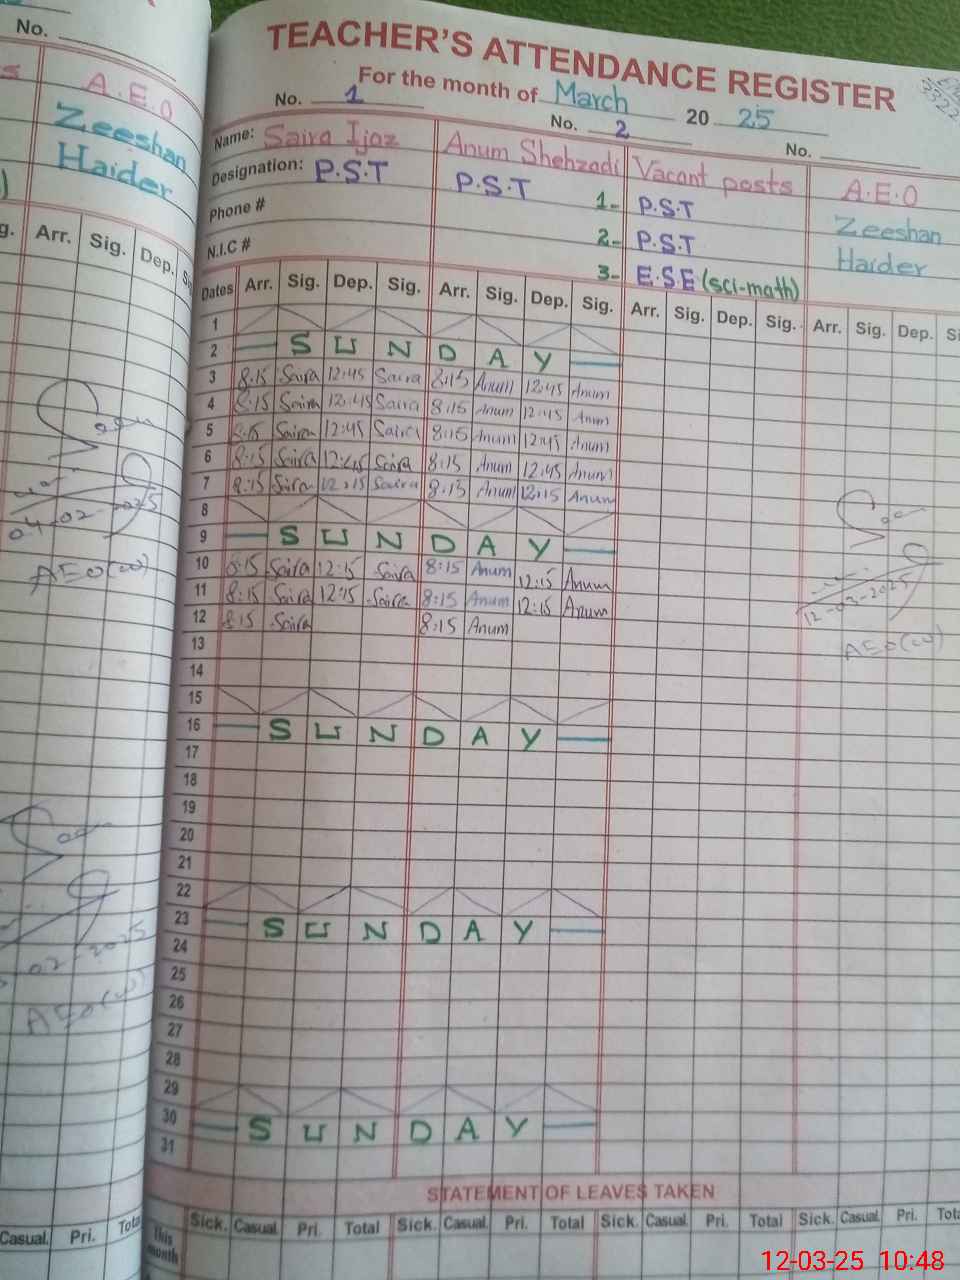 No.
A.E.O
Zeeshan
Haider
Arr. Sig. Dep.
04-02-2025
AEO(w)
02-2025
AEO(w)
Casual. Pri. Total
TEACHER'S ATTENDANCE REGISTER
For the month of March 20 25
No. 1 No. 2 No.
Name: Saira Ijaz Anum Shehzadi Vacant posts A.E.O
Designation: P.S.T P.S.T 1- P.S.T Zeeshan
Phone # 2- P.S.T Haider
N.I.C # 3- E.S.E (sci-math)
Dates Arr. Sig. Dep. Sig. Arr. Sig. Dep. Sig. Arr. Sig. Dep. Sig. Arr. Sig. Dep.
1
2 SUNDAY
3 8:15 Saira 12:45 Saira 8:15 Anum 12:45 Anum
4 8:15 Saira 12:45 Saira 8:15 Anum 12:45 Anum
5 8:15 Saira 12:45 Saira 8:15 Anum 12:45 Anum
6 8:15 Saira 12:45 Saira 8:15 Anum 12:45 Anum
7 8:15 Saira 12:15 Saira 8:15 Anum 12:15 Anum
8
9 SUNDAY
10 8:15 Saira 12:15 Saira 8:15 Anum 12:15 Anum
11 8:15 Saira 12:15 Saira 8:15 Anum 12:15 Anum
12 8:15 Saira 8:15 Anum
12-03-2025
13
AEO(w)
14
15
16 SUNDAY
17
18
19
20
21
22
23 SUNDAY
24
25
26
27
28
29
30 SUNDAY
31
STATEMENT OF LEAVES TAKEN
This month Sick. Casual. Pri. Total Sick. Casual. Pri. Total Sick. Casual. Pri. Total Sick. Casual. Pri.
12-03-25 10:48